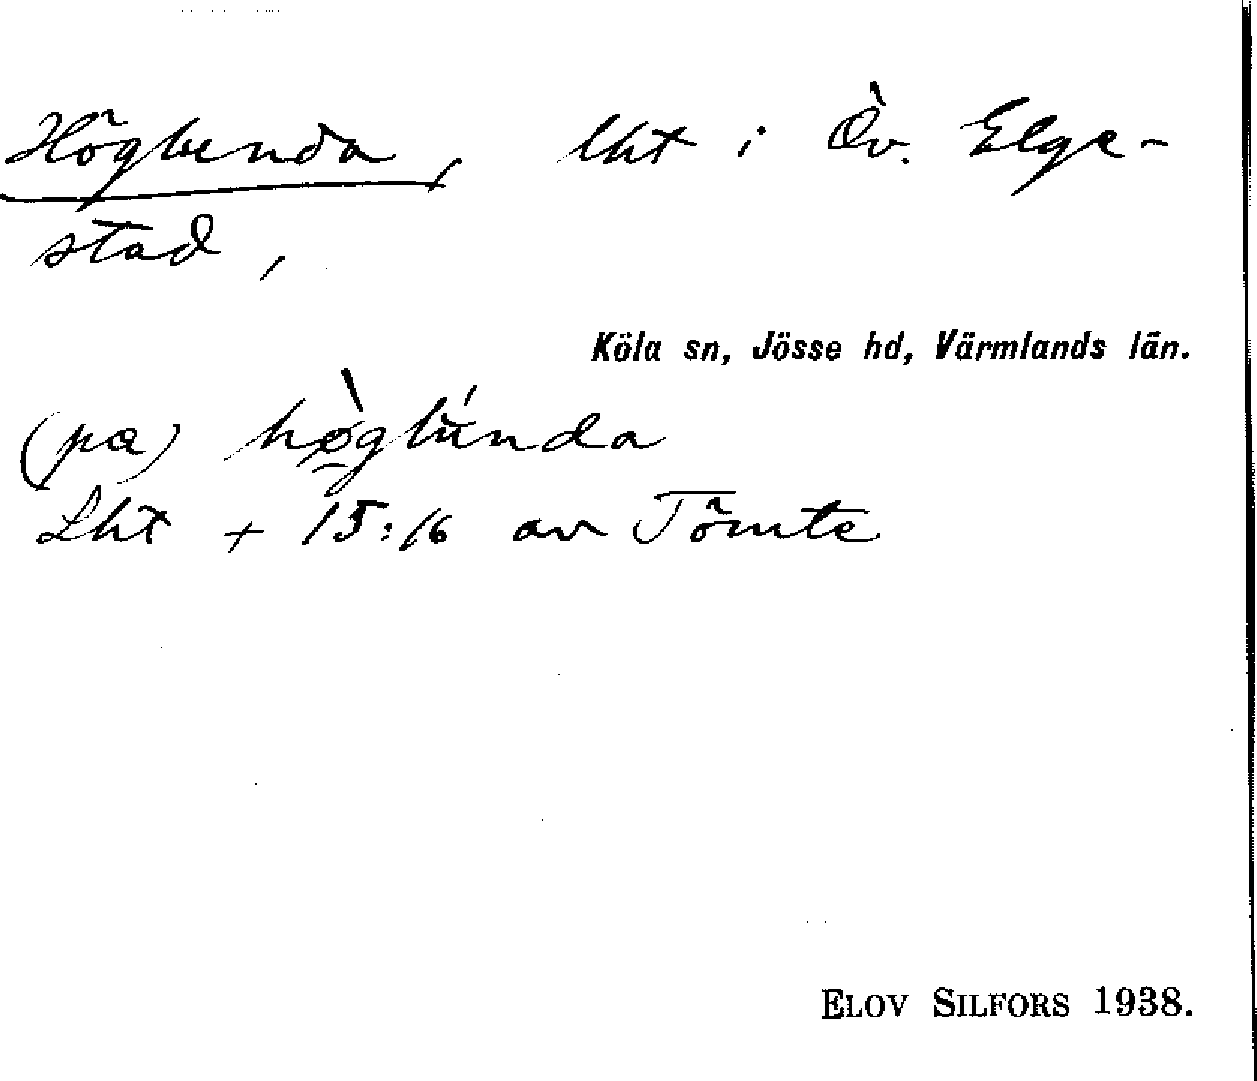 Höglunda, lht i Öv. Elge-
stad,
Köla sn, Jösse hd, Värmlands län.
(pa) hø̀glúnda
Lht + 15:16 av Tömte
ELOV SILFORS 1938.